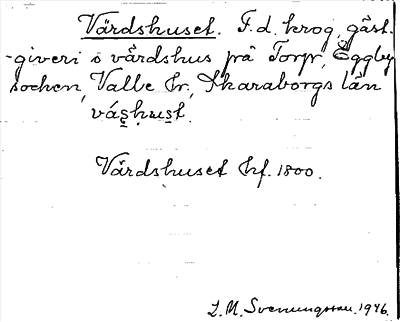 Värdshuset. F.d. krog, gäst-
-giveri o värdshus på Torp, Eggby
socken, Valle hr, Skaraborgs län
vás̱hus̱t.
Värdshuset hf. 1800.
L. M. Svenungsson. 1946.